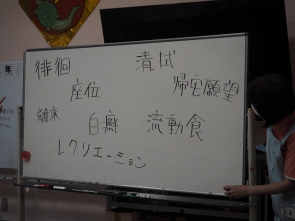 徘徊 清拭
座位 帰宅願望
離床
白癬 流動食
レクリエーション
年